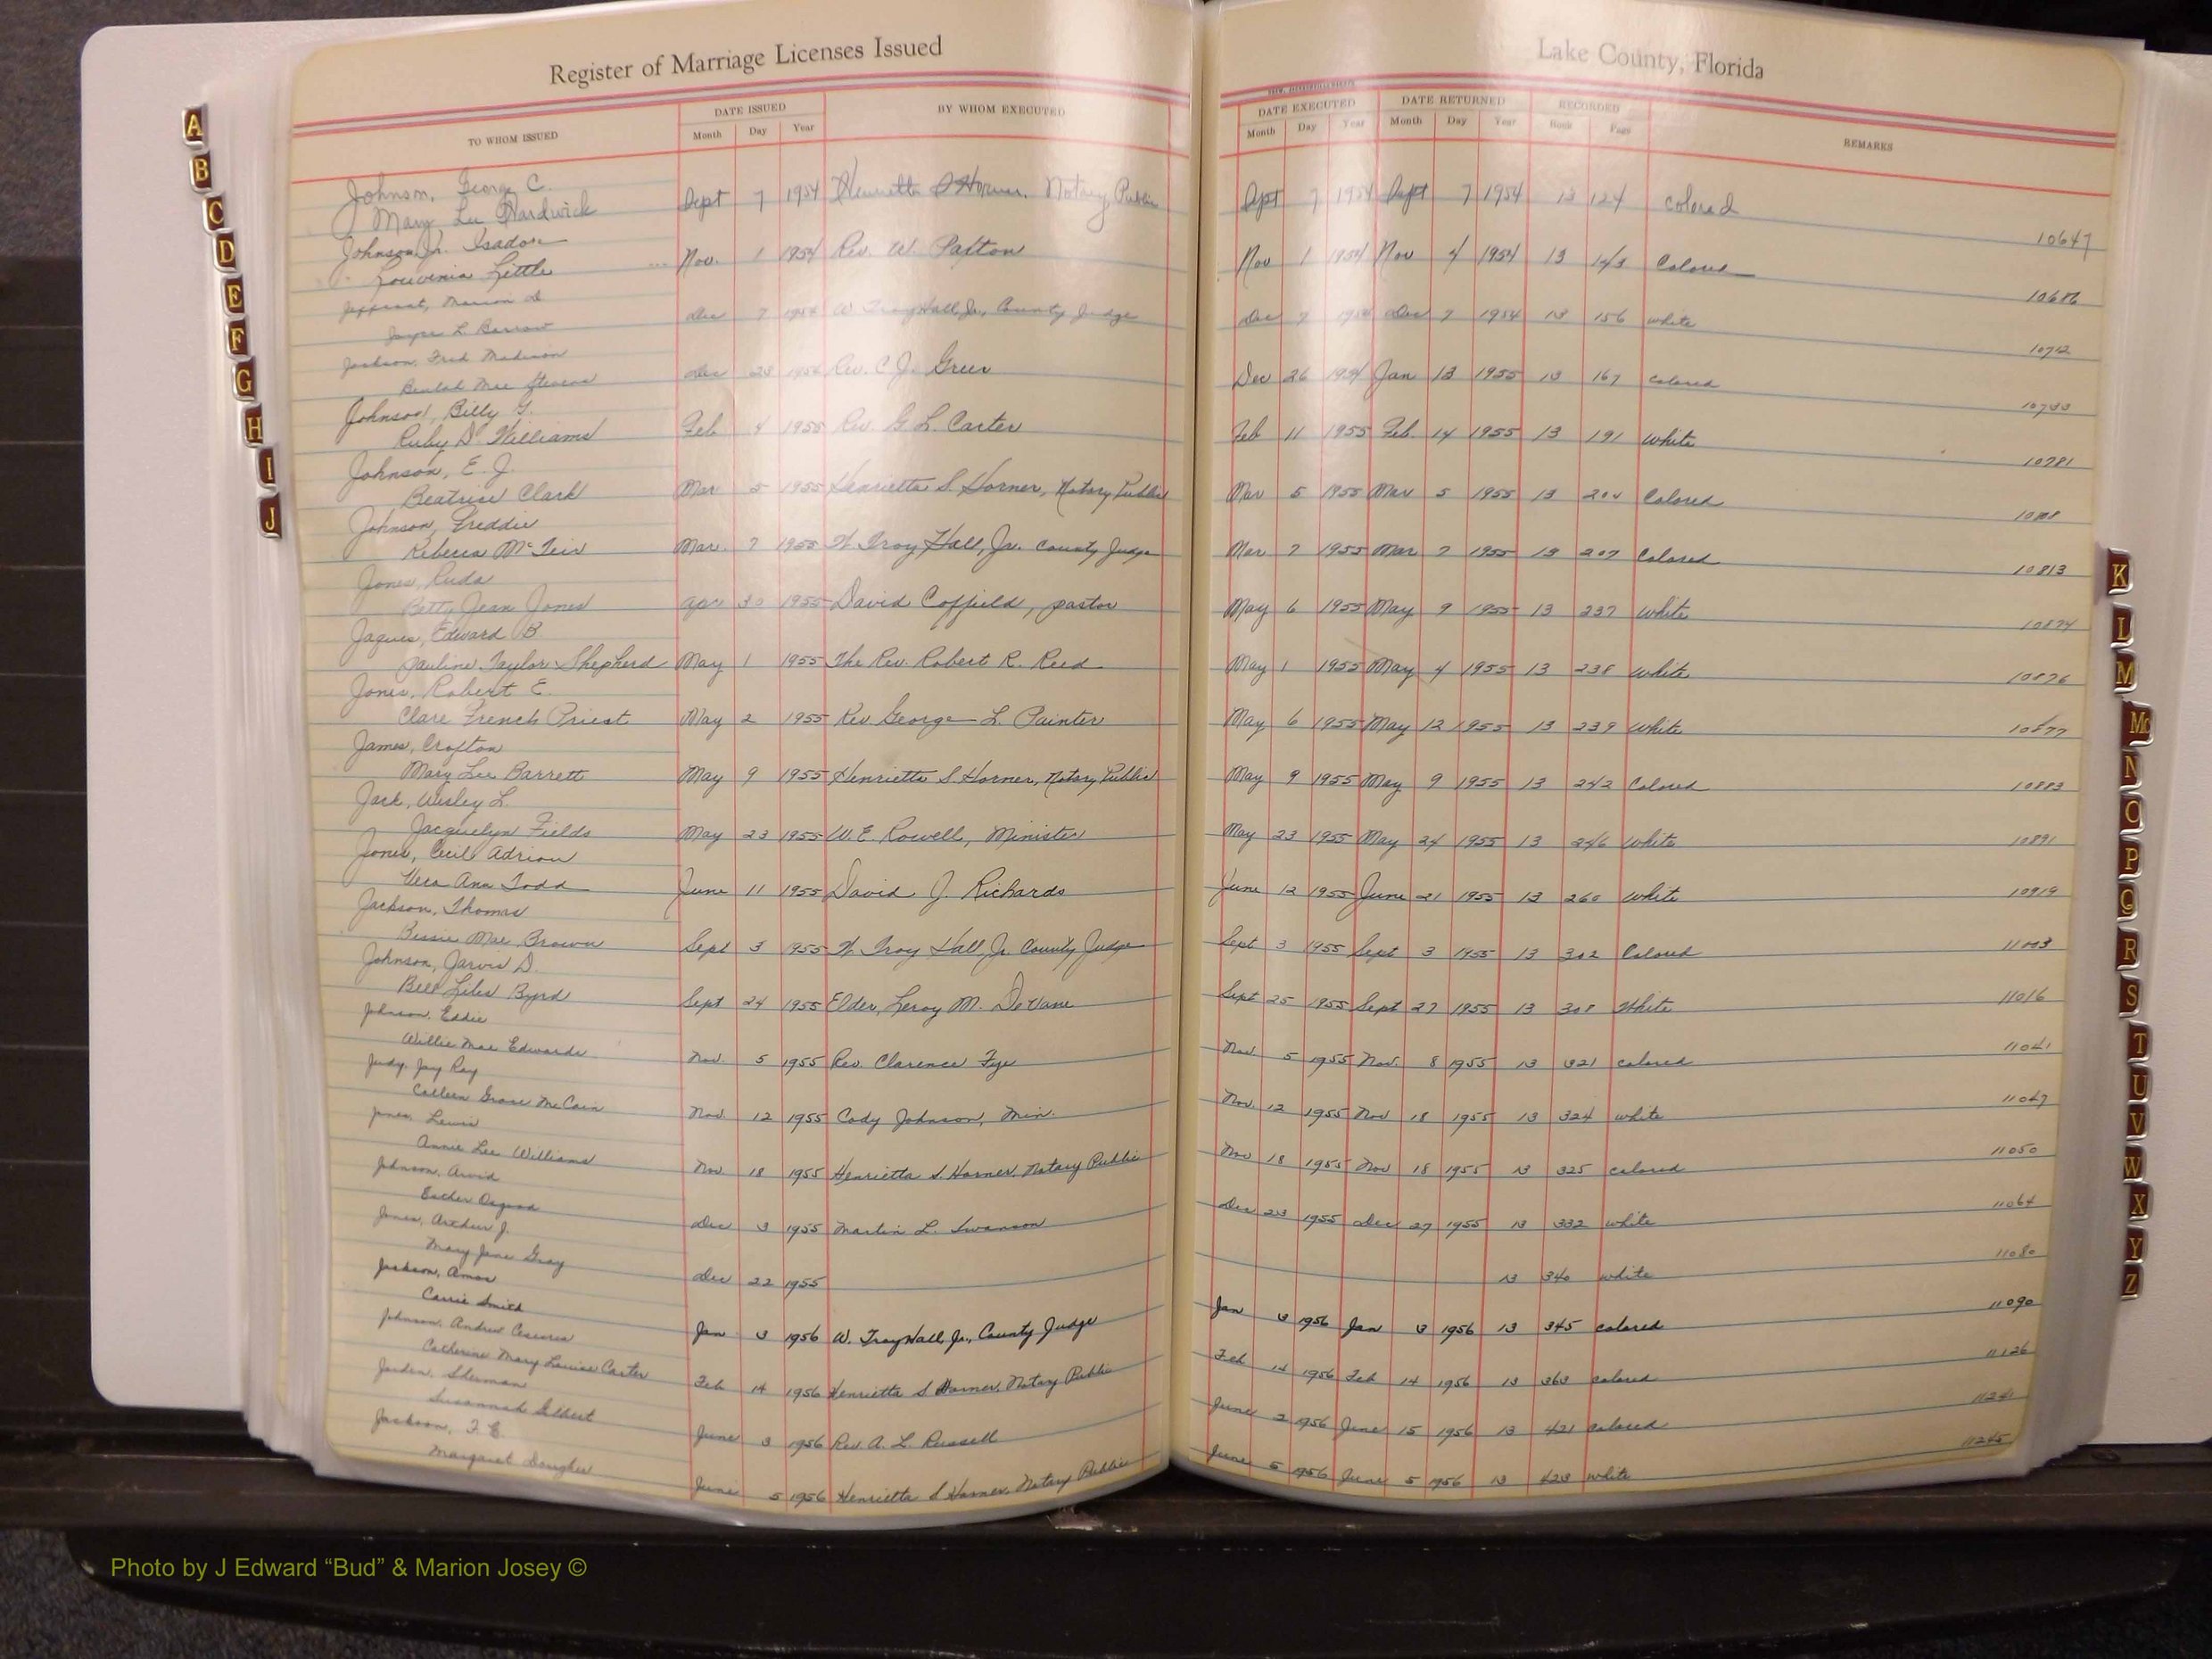 Register of Marriage Licenses Issued
Lake County, Florida
TO WHOM ISSUED
DATE ISSUED
Month Day Year
BY WHOM EXECUTED
DATE EXECUTED
Month Day Year
DATE RETURNED
Month Day Year
RECORDED
Book Page
REMARKS
Johnson, George C.
Mary Lee Hardwick Sept 7 1954 Henrietta S Horner, Notary Public Sept 7 1954 Sept 7 1954 13 124 Colored 10647
Johnson Jr. Isadore
Louvenia Little Nov. 1 1954 Rev. W. Paxton Nov 1 1954 Nov 4 1954 13 143 Colored 10686
Marion D
Joyce L. Barrow Dec 7 1954 W. Troy Hall, Jr., County Judge Dec 7 1954 Dec 7 1954 13 156 white 10712
Jackson, Fred Madison
Beulah Mae Stevens Dec 23 1954 Rev. C. J. Green Dec 26 1954 Jan 13 1955 13 167 colored 10733
Johnson, Billy G.
Ruby D. Williams Feb 4 1955 Rev. G. L. Carter Feb 11 1955 Feb. 14 1955 13 191 White 10781
Johnson, E. J.
Beatrice Clark Mar 5 1955 Henrietta S. Horner, Notary Public Mar 5 1955 Mar 5 1955 13 204 Colored
Johnson, Freddie
Rebecca McTeir Mar. 7 1955 W. Troy Hall, Jr. County Judge Mar 7 1955 Mar 7 1955 13 207 Colored 10813
Jones, Ruda
Betty Jean Jones Apr 30 1955 David Coffield, pastor May 6 1955 May 9 1955 13 237 White 10874
Jaques, Edward B
Pauline Taylor Shepherd May 1 1955 The Rev. Robert R. Reed May 1 1955 May 4 1955 13 238 White 10876
Jones, Robert E.
Clare French Priest May 2 1955 Rev George L. Painter May 6 1955 May 12 1955 13 239 White 10877
James, Crofton
Mary Lee Barrett May 9 1955 Henrietta S. Horner, Notary Public May 9 1955 May 9 1955 13 242 Colored 10883
Jack, Wesley L.
Jacquelyn Fields May 23 1955 W. E. Rowell, Minister May 23 1955 May 24 1955 13 246 White 10891
Jones, Cecil Adrion
Vera Ann Todd June 11 1955 David J. Richards June 12 1955 June 21 1955 13 260 White 10919
Jackson, Thomas
Bessie Mae Brown Sept 3 1955 W. Troy Hall, Jr. County Judge Sept 3 1955 Sept 3 1955 13 302 Colored 11003
Johnson, Jarvis D.
Bill Liles Byrd Sept 24 1955 Elder, Leroy M. DeVane Sept 25 1955 Sept 27 1955 13 308 White 11016
Johnson, Eddie
Willie Mae Edwards Nov. 5 1955 Rev. Clarence Fye Nov. 5 1955 Nov. 8 1955 13 321 colored 11041
Judy, Jay Ray
Colleen Grose McCain Nov. 12 1955 Cody Johnson, Min. Nov. 12 1955 Nov 18 1955 13 324 white 11047
Jones, Lewis
Annie Lee Williams Nov. 18 1955 Henrietta S. Horner, Notary Public Nov 18 1955 Nov 18 1955 13 325 colored 11050
Johnson, Arvid
Esther Osgood Dec 3 1955 Martin L. Swanson Dec 23 1955 Dec 27 1955 13 332 white 11064
Jones, Arthur J.
Mary Jane Gray Dec 22 1955 13 340 white 11080
Jackson, Amos
Carrie Smith Jan 3 1956 W. Troy Hall, Jr., County Judge Jan 3 1956 Jan 3 1956 13 345 colored 11090
Johnson, Andrew
Catherine Mary Louise Carter Feb 14 1956 Henrietta S Horner, Notary Public Feb 14 1956 Feb 14 1956 13 363 colored 11126
Jorden, Sherman
Susannah Gilbert June 3 1956 Rev. A. L. Russell June 2 1956 June 15 1956 13 421 colored 11241
Jackson, F. E.
Margaret June 5 1956 Henrietta S Horner, Notary Public June 5 1956 June 5 1956 13 423 white 11245
A
B
C
D
E
F
G
H
I
J
K
L
M
Mc
N
O
P
Q
R
S
T
U
V
W
X
Y
Z
Photo by J Edward “Bud” & Marion Josey ©